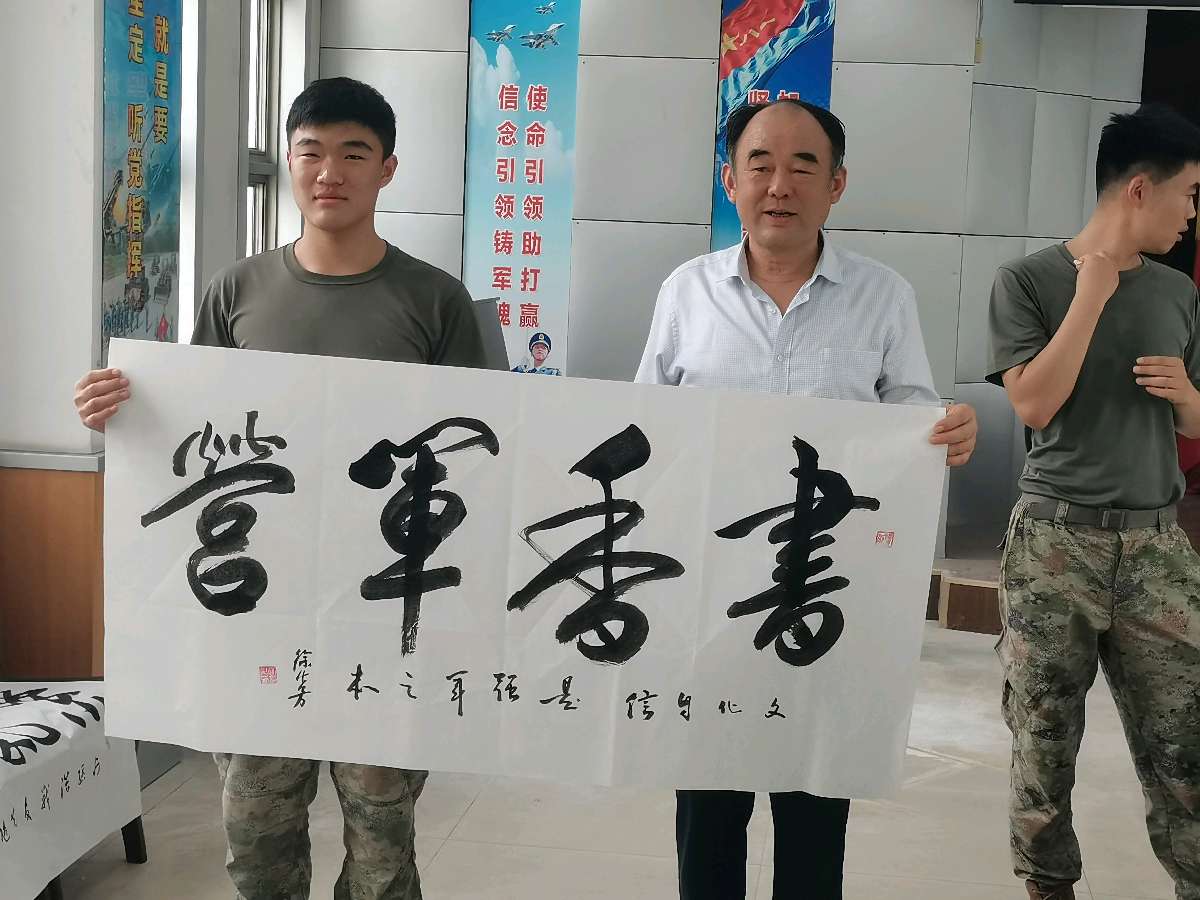 就是要
定 听党指挥
使命引领助打赢
信念引领铸军魂
八一
書香軍營
文化自信是强军之本
徐